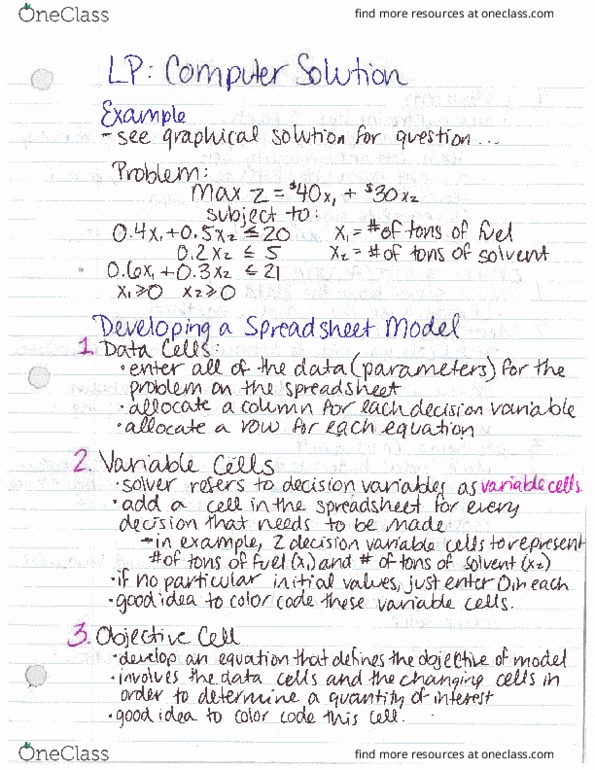 OneClass
find more resources at oneclass.com
LP: Computer Solution
Example
- see graphical solution for question...
Problem:
Max Z = $40x₁ + $30x₂
subject to:
0.4x₁ + 0.5x₂ ≤ 20 x₁ = # of tons of fuel
0.2x₂ ≤ 5 x₂ = # of tons of solvent
0.6x₁ + 0.3x₂ ≤ 21
x₁ ≥ 0 x₂ ≥ 0
Developing a Spreadsheet Model
1. Data Cells:
• enter all of the data (parameters) for the
problem on the spreadsheet
• allocate a column for each decision variable
• allocate a row for each equation
2. Variable Cells
• solver refers to decision variables as variable cells
• add a cell in the spreadsheet for every
decision that needs to be made
→ in example, 2 decision variable cells to represent
# of tons of fuel (x₁) and # of tons of solvent (x₂)
• if no particular initial values, just enter 0 in each
• good idea to color code these variable cells.
3. Objective Cell
• develop an equation that defines the objective of model
• involves the data cells and the changing cells in
order to determine a quantity of interest
• good idea to color code this cell.
OneClass
find more resources at oneclass.com